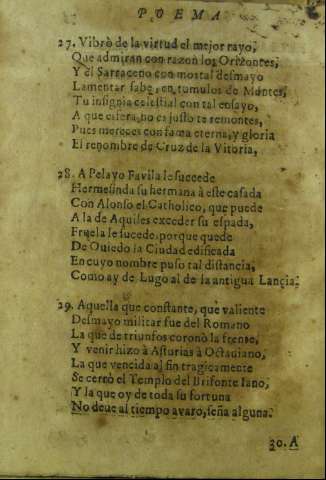 POEMA
27. Vibrò de la virtud el mejor rayo,
Que admiran con razon los Orizontes,
Y el Sarraceno con mortal desmayo
Lamentar sabe, en tumulos de Montes,
Tu insignia celestial con tal ensayo,
A que esfera, no es justo te remontes,
Pues mereces con fama eterna, y gloria
El renombre de Cruz de la Vitoria,
28. A Pelayo Favila le succede
Hermesinda su hermana à este casada
Con Alonso el Catholico, que puede
A la de Aquiles exceder su espada,
Fruela le sucede, porque quede
De Ouiedo la Ciudad edificada
En cuyo nombre puso tal distancia,
Como ay de Lugo al de la antigua Lancia.
29. Aquella que constante, que valiente
Desmayo militar fue del Romano
La que de triunfos coronò la frente,
Y venir hizo à Asturias à Octauiano,
La que vencida al fin tragicamente
Se cerrò el Templo del Brifonte Iano,
Y la que oy de toda su fortuna
No deue al tiempo avaro, seña alguna.
30. A